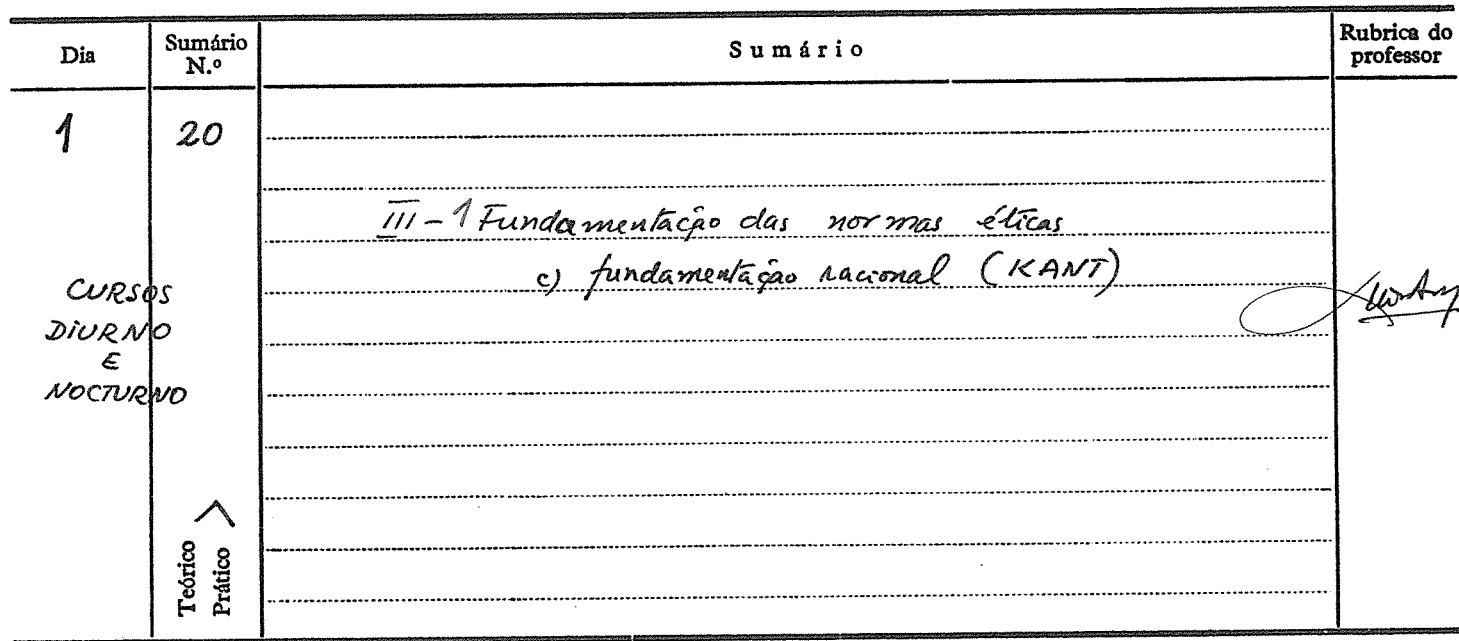 Dia
Sumário
N.º
Sumário
Rubrica do
professor
1
20
III - 1 Fundamentação das normas éticas
c) fundamentação racional (KANT)
CURSOS
DIURNO
E
NOCTURNO
Teórico
Prático